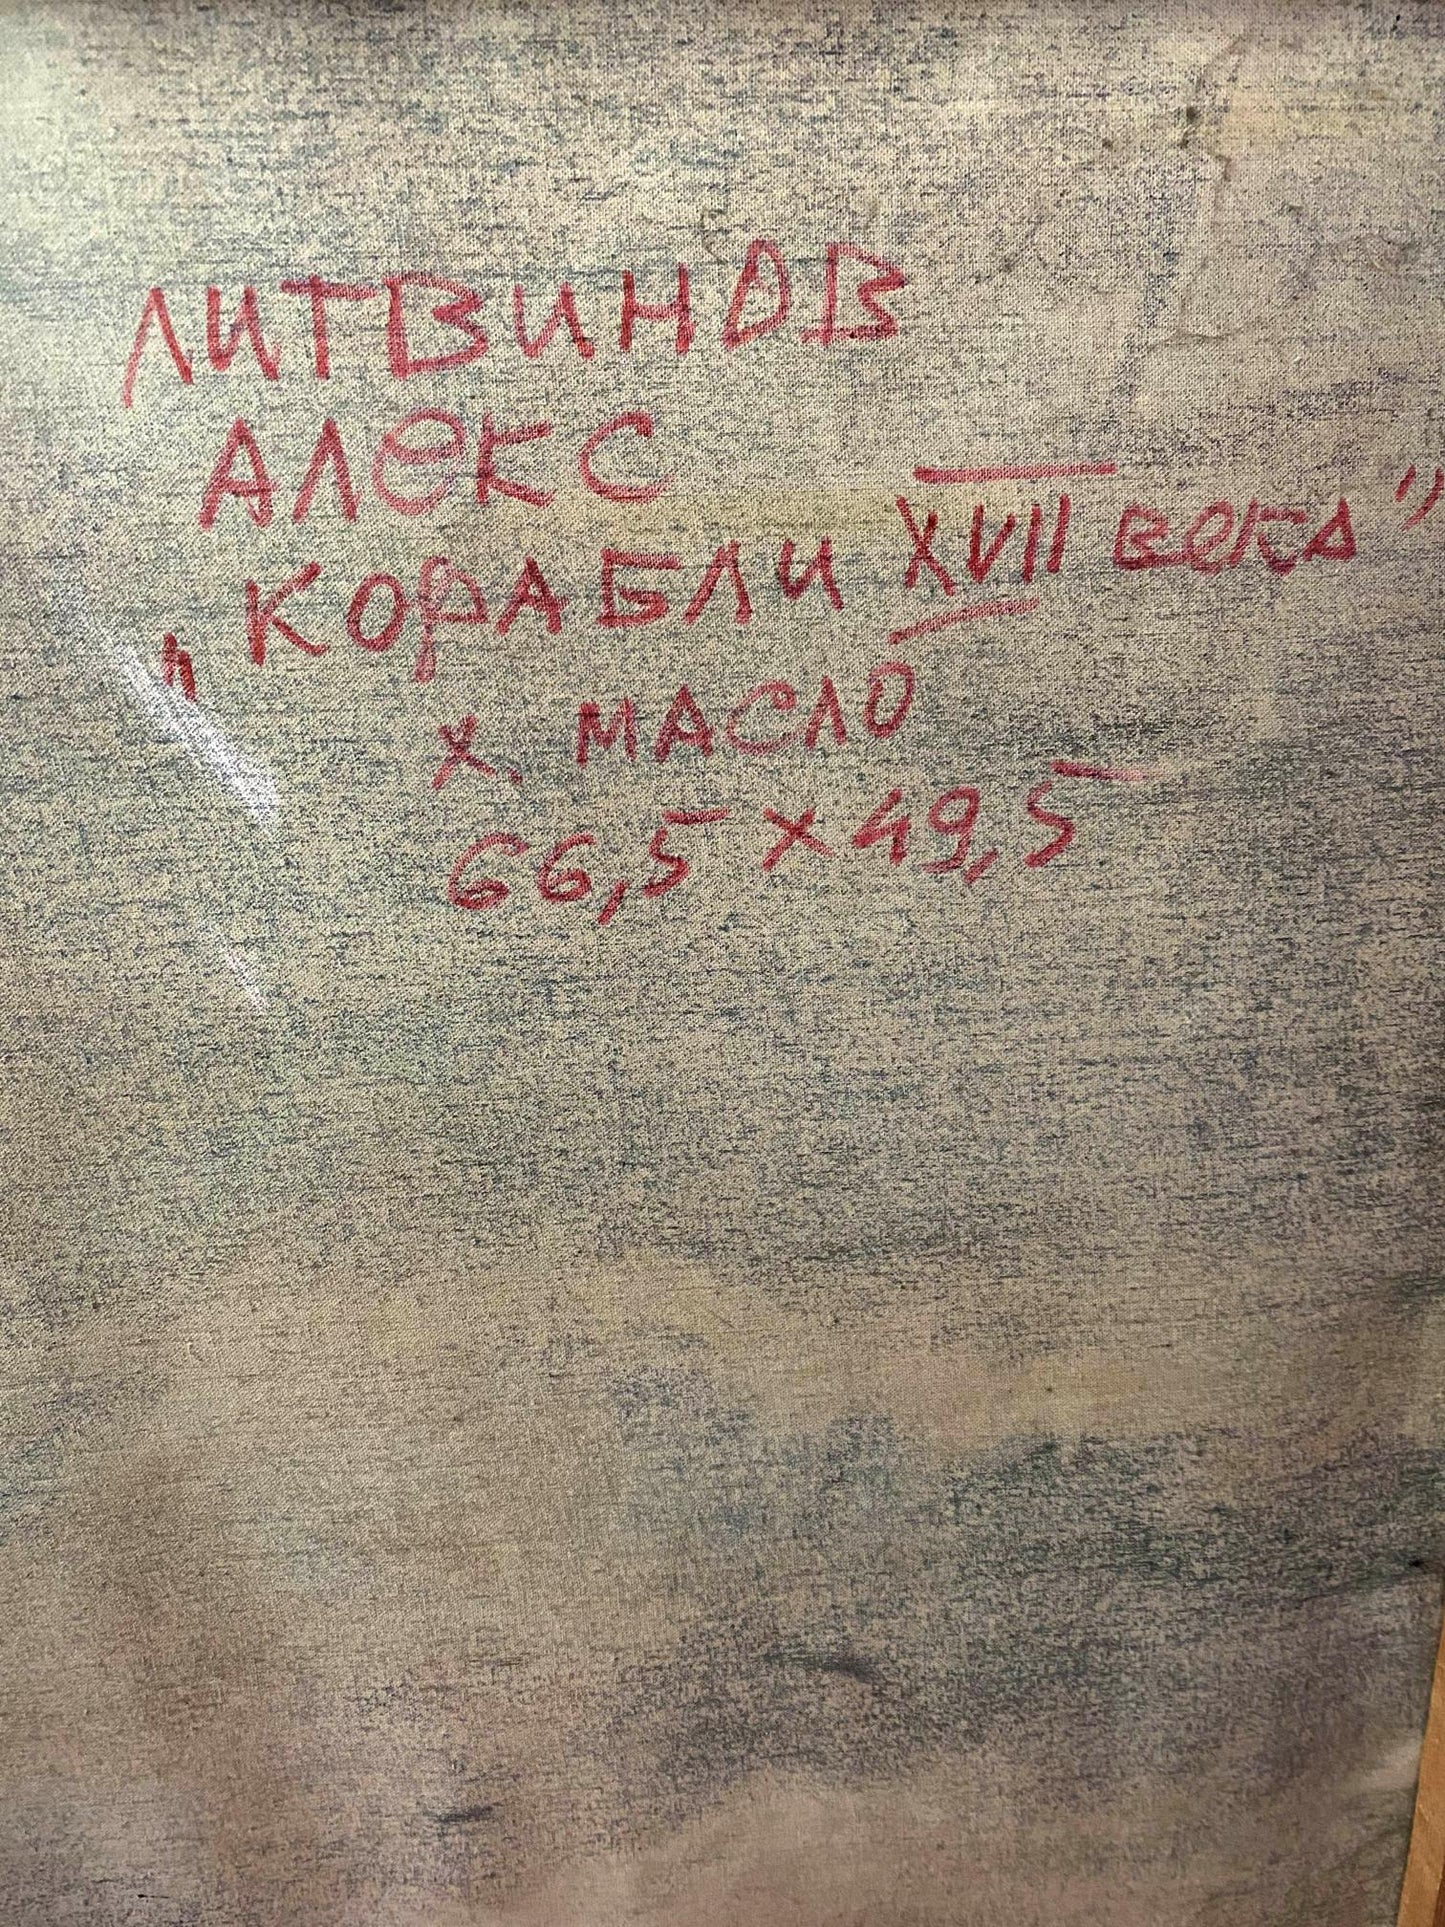 ЛИТВИНОВ
АЛЕКС
„КОРАБЛИ XVII века"
х. МАСЛО
66,5 × 49,5